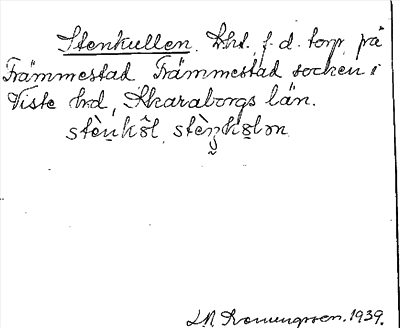 Stenkullen, lht, f.d. torp på
Främmestad Främmestad socken i
Viste hrd, Skaraborgs län.
stèn̥kôl, stèn̥kôlən
1939.